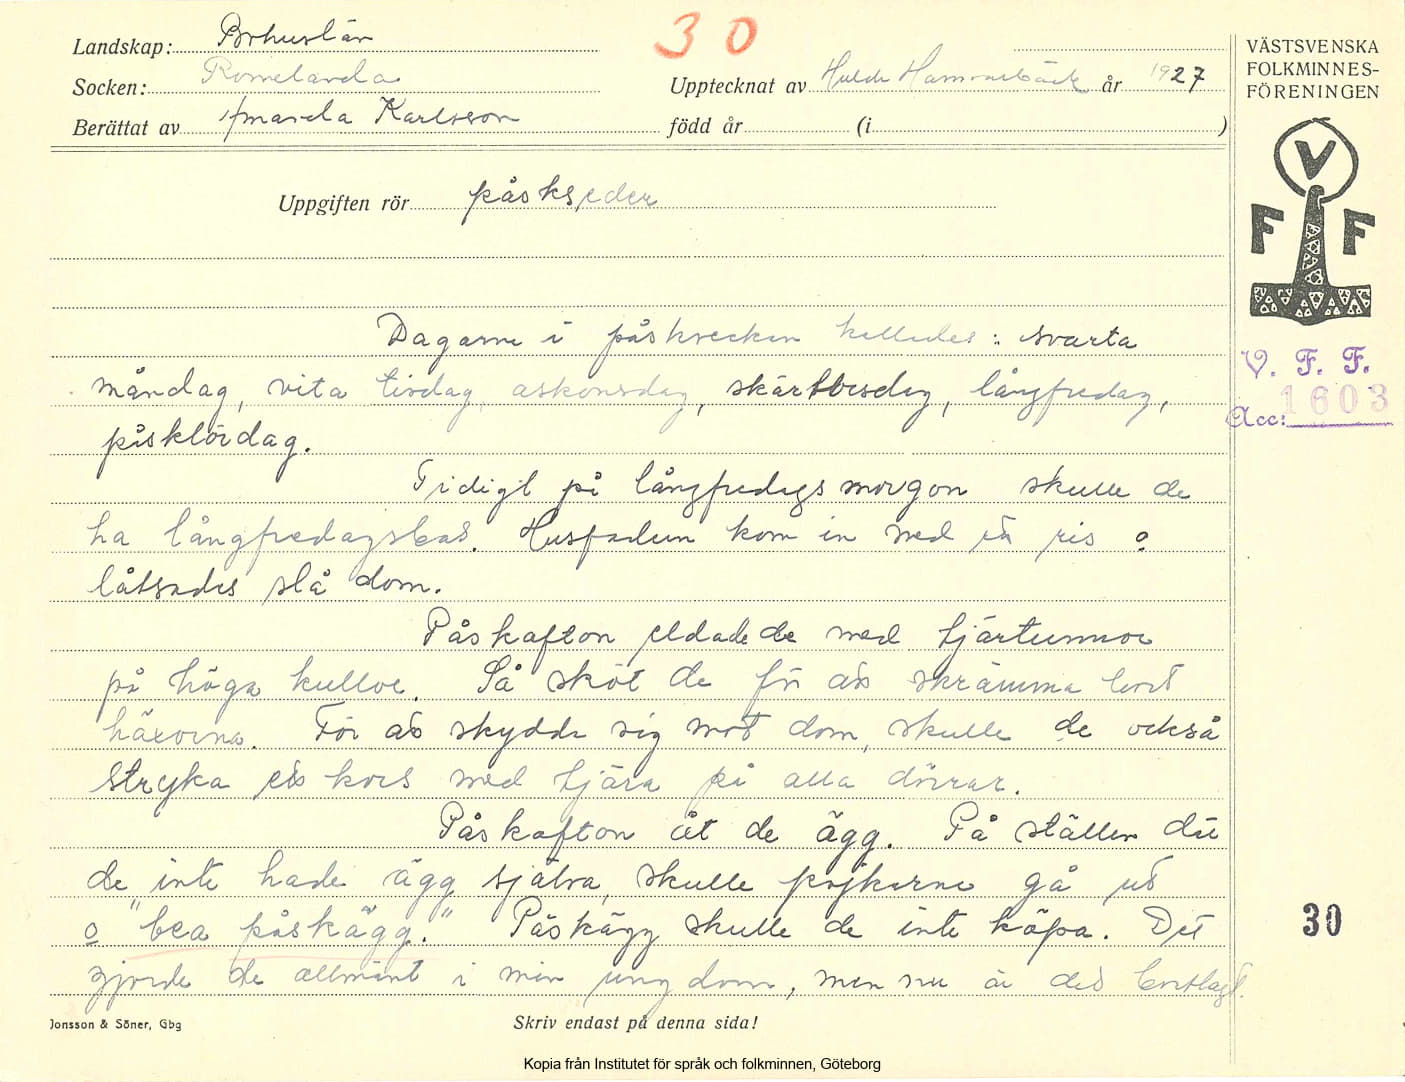 30
Landskap: Bohuslän
Socken: Romelanda
Upptecknat av Hulda Hammarbäck år 1927
Berättat av Amanda Karlsson född år (i )
VÄSTSVENSKA
FOLKMINNES-
FÖRENINGEN
V
F F
Uppgiften rör påskseder
Dagarne i påskveckan kallades: svarta
måndag, vita tisdag, askonsdag, skärtorsdag, långfredag,
påsklördag.
Tidigt på långfredagsmorgon skulle de
ha långfredagsbas. Husfadern kom in med ett ris o
låtsades slå dom.
Påskafton eldade de med tjärtunnor
på höga kullor. Så sköt de för att skrämma bort
häxorna. För att skydda sig mot dom, skulle de också
stryka ett kors med tjära på alla dörrar.
Påskafton åt de ägg. På ställen där
de inte hade ägg själva, skulle pojkarne gå ut
o "bea påskägg." Påskägg skulle de inte köpa. Det
gjorde de allmänt i min ungdom, men nu är det bortlagt.
V. F. F.
Acc: 1603
30
Jonsson & Söner, Gbg
Skriv endast på denna sida!
Kopia från Institutet för språk och folkminnen, Göteborg